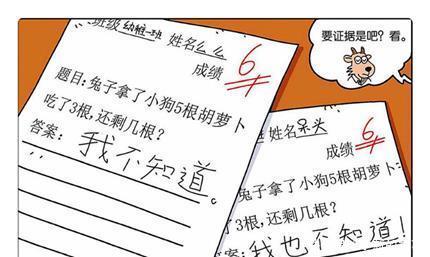 班级幼稚一班 姓名么么
成绩 6
题目:兔子拿了小狗5根胡萝卜
吃了3根,还剩几根?
答案: 我不知道。
要证据是吧?看。
班 姓名呆头
成绩 6
兔子拿了小狗5根胡萝卜
了3根,还剩几根?
案: 我也不知道!